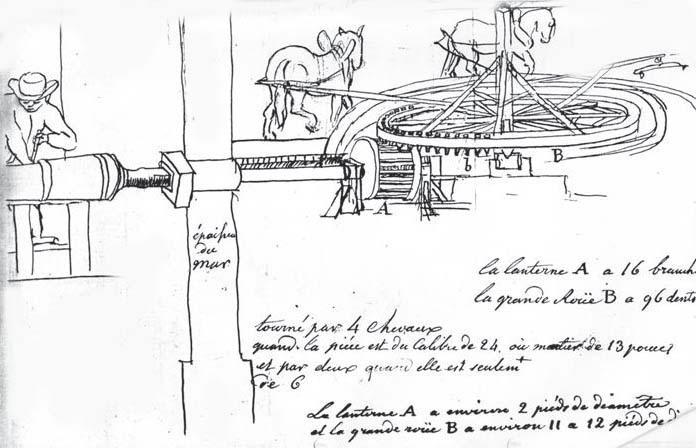 B
b
A
épaisseur
du
mur
la lanterne A a 16 branch
la grande Roüe B a 96 dents
tourné par 4 chevaux
quand la piéce est du Calibre de 24, où mortier de 13 pouces
et par deux quand elle est seulemt
de 6
La lanterne A a environ 2 piéds de diamétre
et la grande roüe B a environ 11 a 12 piéds de di